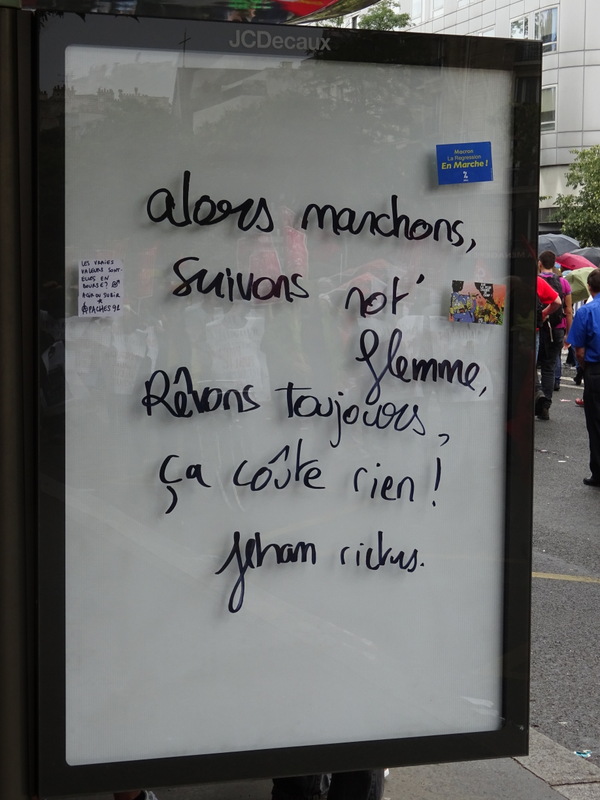 JCDecaux
Macron
La Regression
En Marche !
alors marchons,
suivons not'
flemme,
Rêvons toujours,
ça coûte rien !
Jehan rictus.
LES VRAIES
VALEURS SONT-
ELLES EN
BOURSE ?
AGIR OU SUBIR
APACHES 92